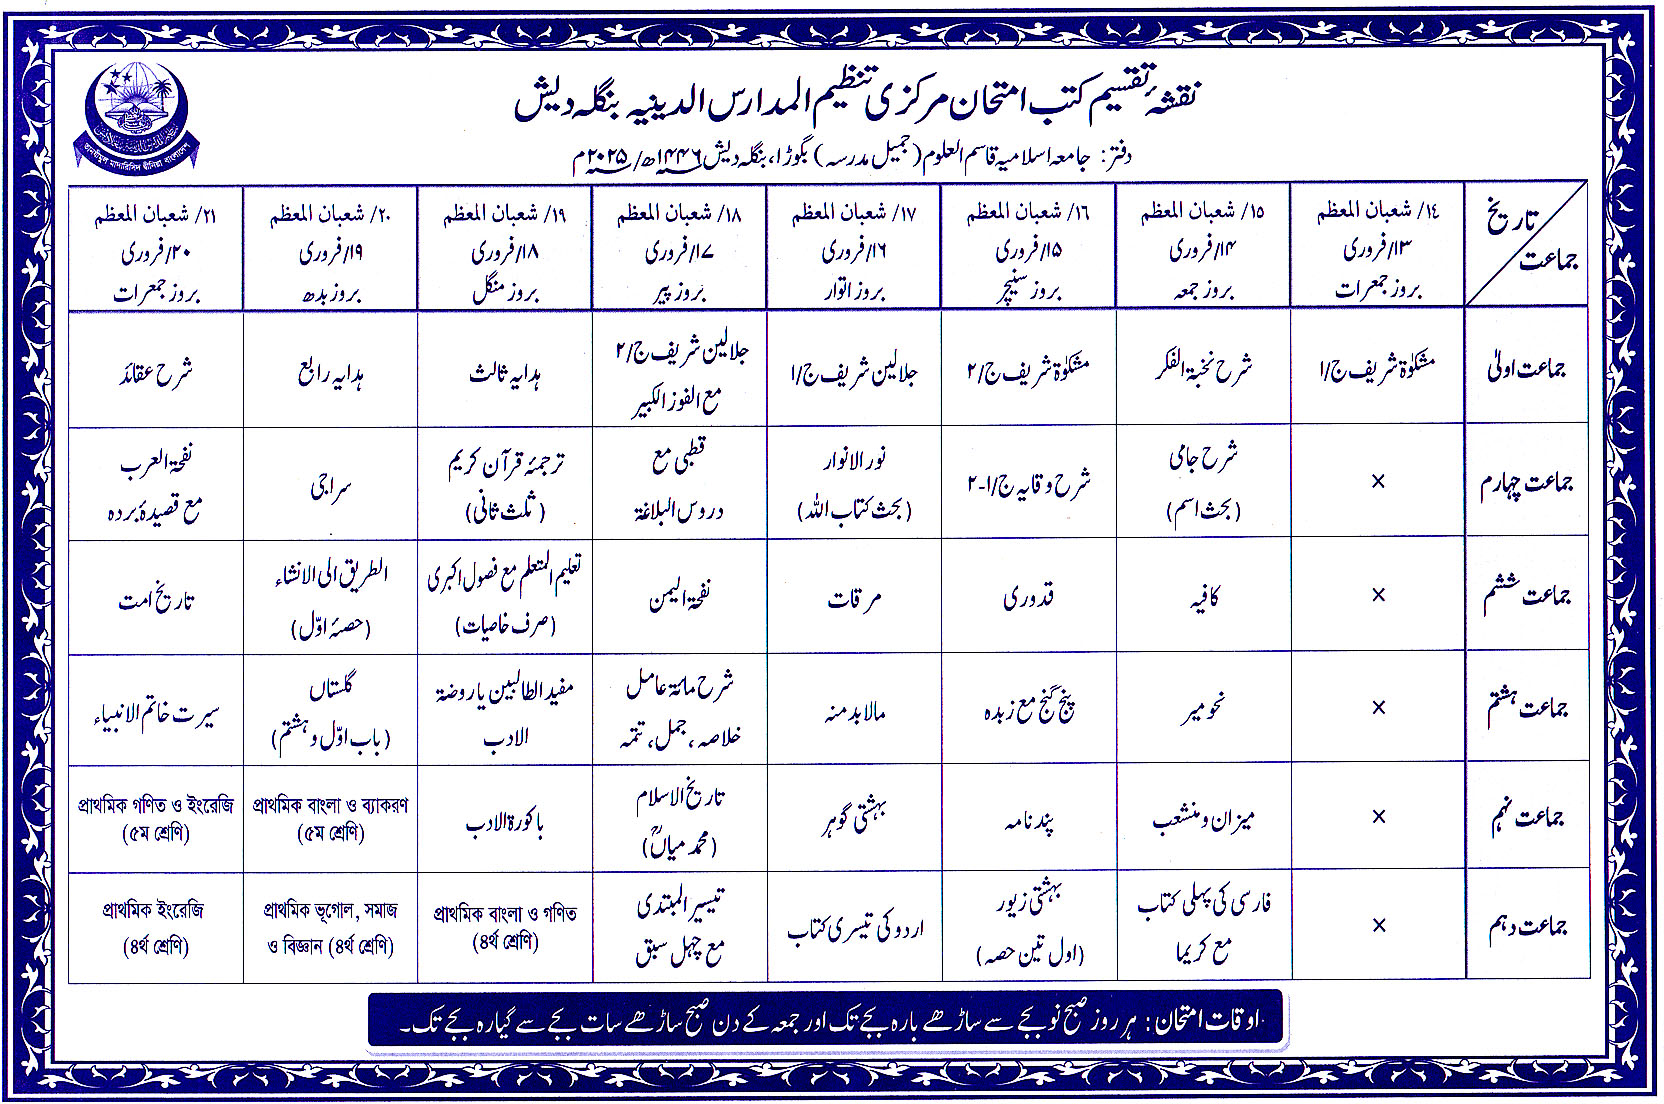 نقشۂ تقسیم کتب امتحان مرکزی تنظیم المدارس الدینیہ بنگلہ دیش
দفتر: جامعہ اسلامیہ قاسم العلوم (جمیل مدرسہ) بگوڑا، بنگلہ دیش ۱۴۴۶ھ/۲۰۲۵م
তানযীমুল মাদারিসিদ দ্বীনিয়া বাংলাদেশ
تاریخ
جماعت
۱۴/ شعبان المعظم
۱۳/فروری
بروز جمعرات
۱۵/ شعبان المعظم
۱۴/فروری
بروز جمعہ
۱۶/ شعبان المعظم
۱۵/فروری
بروز سنیچر
۱۷/ شعبان المعظم
۱۶/فروری
بروز اتوار
۱۸/ شعبان المعظم
۱۷/فروری
بروز پیر
۱۹/ شعبان المعظم
۱۸/فروری
بروز منگل
۲۰/ شعبان المعظم
۱۹/فروری
بروز بدھ
۲۱/ شعبان المعظم
۲۰/فروری
بروز جمعرات
جماعت اولیٰ
مشکوٰۃ شریف ج/۱
شرح نخبۃ الفکر
مشکوٰۃ شریف ج/۲
جلالین شریف ج/۱
جلالین شریف ج/۲
مع الفوز الکبیر
ہدایہ ثالث
ہدایہ رابع
شرح عقائد
جماعت چہارم
×
شرح جامی
(بحث اسم)
شرح وقایہ ج/۱-۲
نور الانوار
(بحث کتاب اللہ)
قطبی مع
دروس البلاغۃ
ترجمۂ قرآن کریم
(ثلث ثانی)
سراجی
نفحۃ العرب
مع قصیدۂ بردہ
جماعت ششم
×
کافیہ
قدوری
مرقات
نفحۃ الیمن
تعلیم المتعلم مع فصول اکبری
(صرف خاصیات)
الطریق الی الانشاء
(حصۂ اوّل)
تاریخ امت
جماعت ہشتم
×
نحو میر
پنج گنج مع زبدہ
مالابدمنہ
شرح مائۃ عامل
خلاصہ، جمل، تتمہ
مفید الطالبین یا روضۃ
الادب
گلستاں
(باب اوّل و ہشتم)
سیرت خاتم الانبیاء
جماعت نہم
×
میزان و منشعب
پند نامہ
بہشتی گوہر
تاریخ الاسلام
(محمد میاںؒ)
باکورۃ الادب
প্রাথমিক বাংলা ও ব্যাকরণ
(৫ম শ্রেণি)
প্রাথমিক গণিত ও ইংরেজি
(৫ম শ্রেণি)
جماعت دہم
×
فارسی کی پہلی کتاب
مع کریما
بہشتی زیور
(اول تین حصہ)
اردو کی تیسری کتاب
تیسیر المبتدی
مع چہل سبق
প্রাথমিক বাংলা ও গণিত
(৪র্থ শ্রেণি)
প্রাথমিক ভূগোল, সমাজ
ও বিজ্ঞান (৪র্থ শ্রেণি)
প্রাথমিক ইংরেজি
(৪র্থ শ্রেণি)
اوقات امتحان: ہر روز صبح نو بجے سے ساڑھے بارہ بجے تک اور جمعہ کے دن صبح ساڑھے سات بجے سے گیارہ بجے تک۔